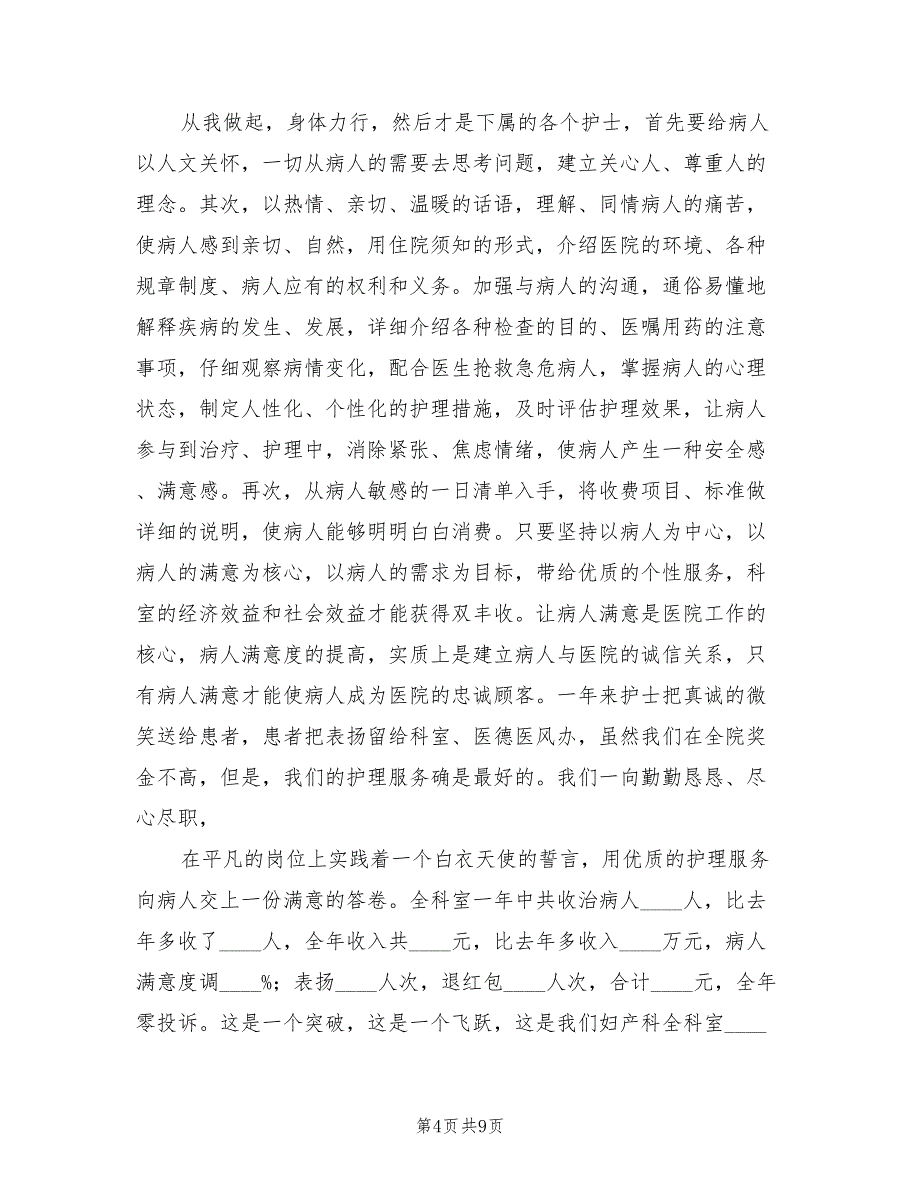 从我做起，身体力行，然后才是下属的各个护士，首先要给病人
以人文关怀，一切从病人的需要去思考问题，建立关心人、尊重人的
理念。其次，以热情、亲切、温暖的话语，理解、同情病人的痛苦，
使病人感到亲切、自然，用住院须知的形式，介绍医院的环境、各种
规章制度、病人应有的权利和义务。加强与病人的沟通，通俗易懂地
解释疾病的发生、发展，详细介绍各种检查的目的、医嘱用药的注意
事项，仔细观察病情变化，配合医生抢救急危病人，掌握病人的心理
状态，制定人性化、个性化的护理措施，及时评估护理效果，让病人
参与到治疗、护理中，消除紧张、焦虑情绪，使病人产生一种安全感
、满意感。再次，从病人敏感的一日清单入手，将收费项目、标准做
详细的说明，使病人能够明明白白消费。只要坚持以病人为中心，以
病人的满意为核心，以病人的需求为目标，带给优质的个性服务，科
室的经济效益和社会效益才能获得双丰收。让病人满意是医院工作的
核心，病人满意度的提高，实质上是建立病人与医院的诚信关系，只
有病人满意才能使病人成为医院的忠诚顾客。一年来护士把真诚的微
笑送给患者，患者把表扬留给科室、医德医风办，虽然我们在全院奖
金不高，但是，我们的护理服务确是最好的。我们一向勤勤恳恳、尽
心尽职，
在平凡的岗位上实践着一个白衣天使的誓言，用优质的护理服务
向病人交上一份满意的答卷。全科室一年中共收治病人____人，比去
年多收了____人，全年收入共____元，比去年多收入____万元，病人
满意度调____%；表扬____人次，退红包____人次，合计____元，全年
零投诉。这是一个突破，这是一个飞跃，这是我们妇产科全科室____
第4页 共9页